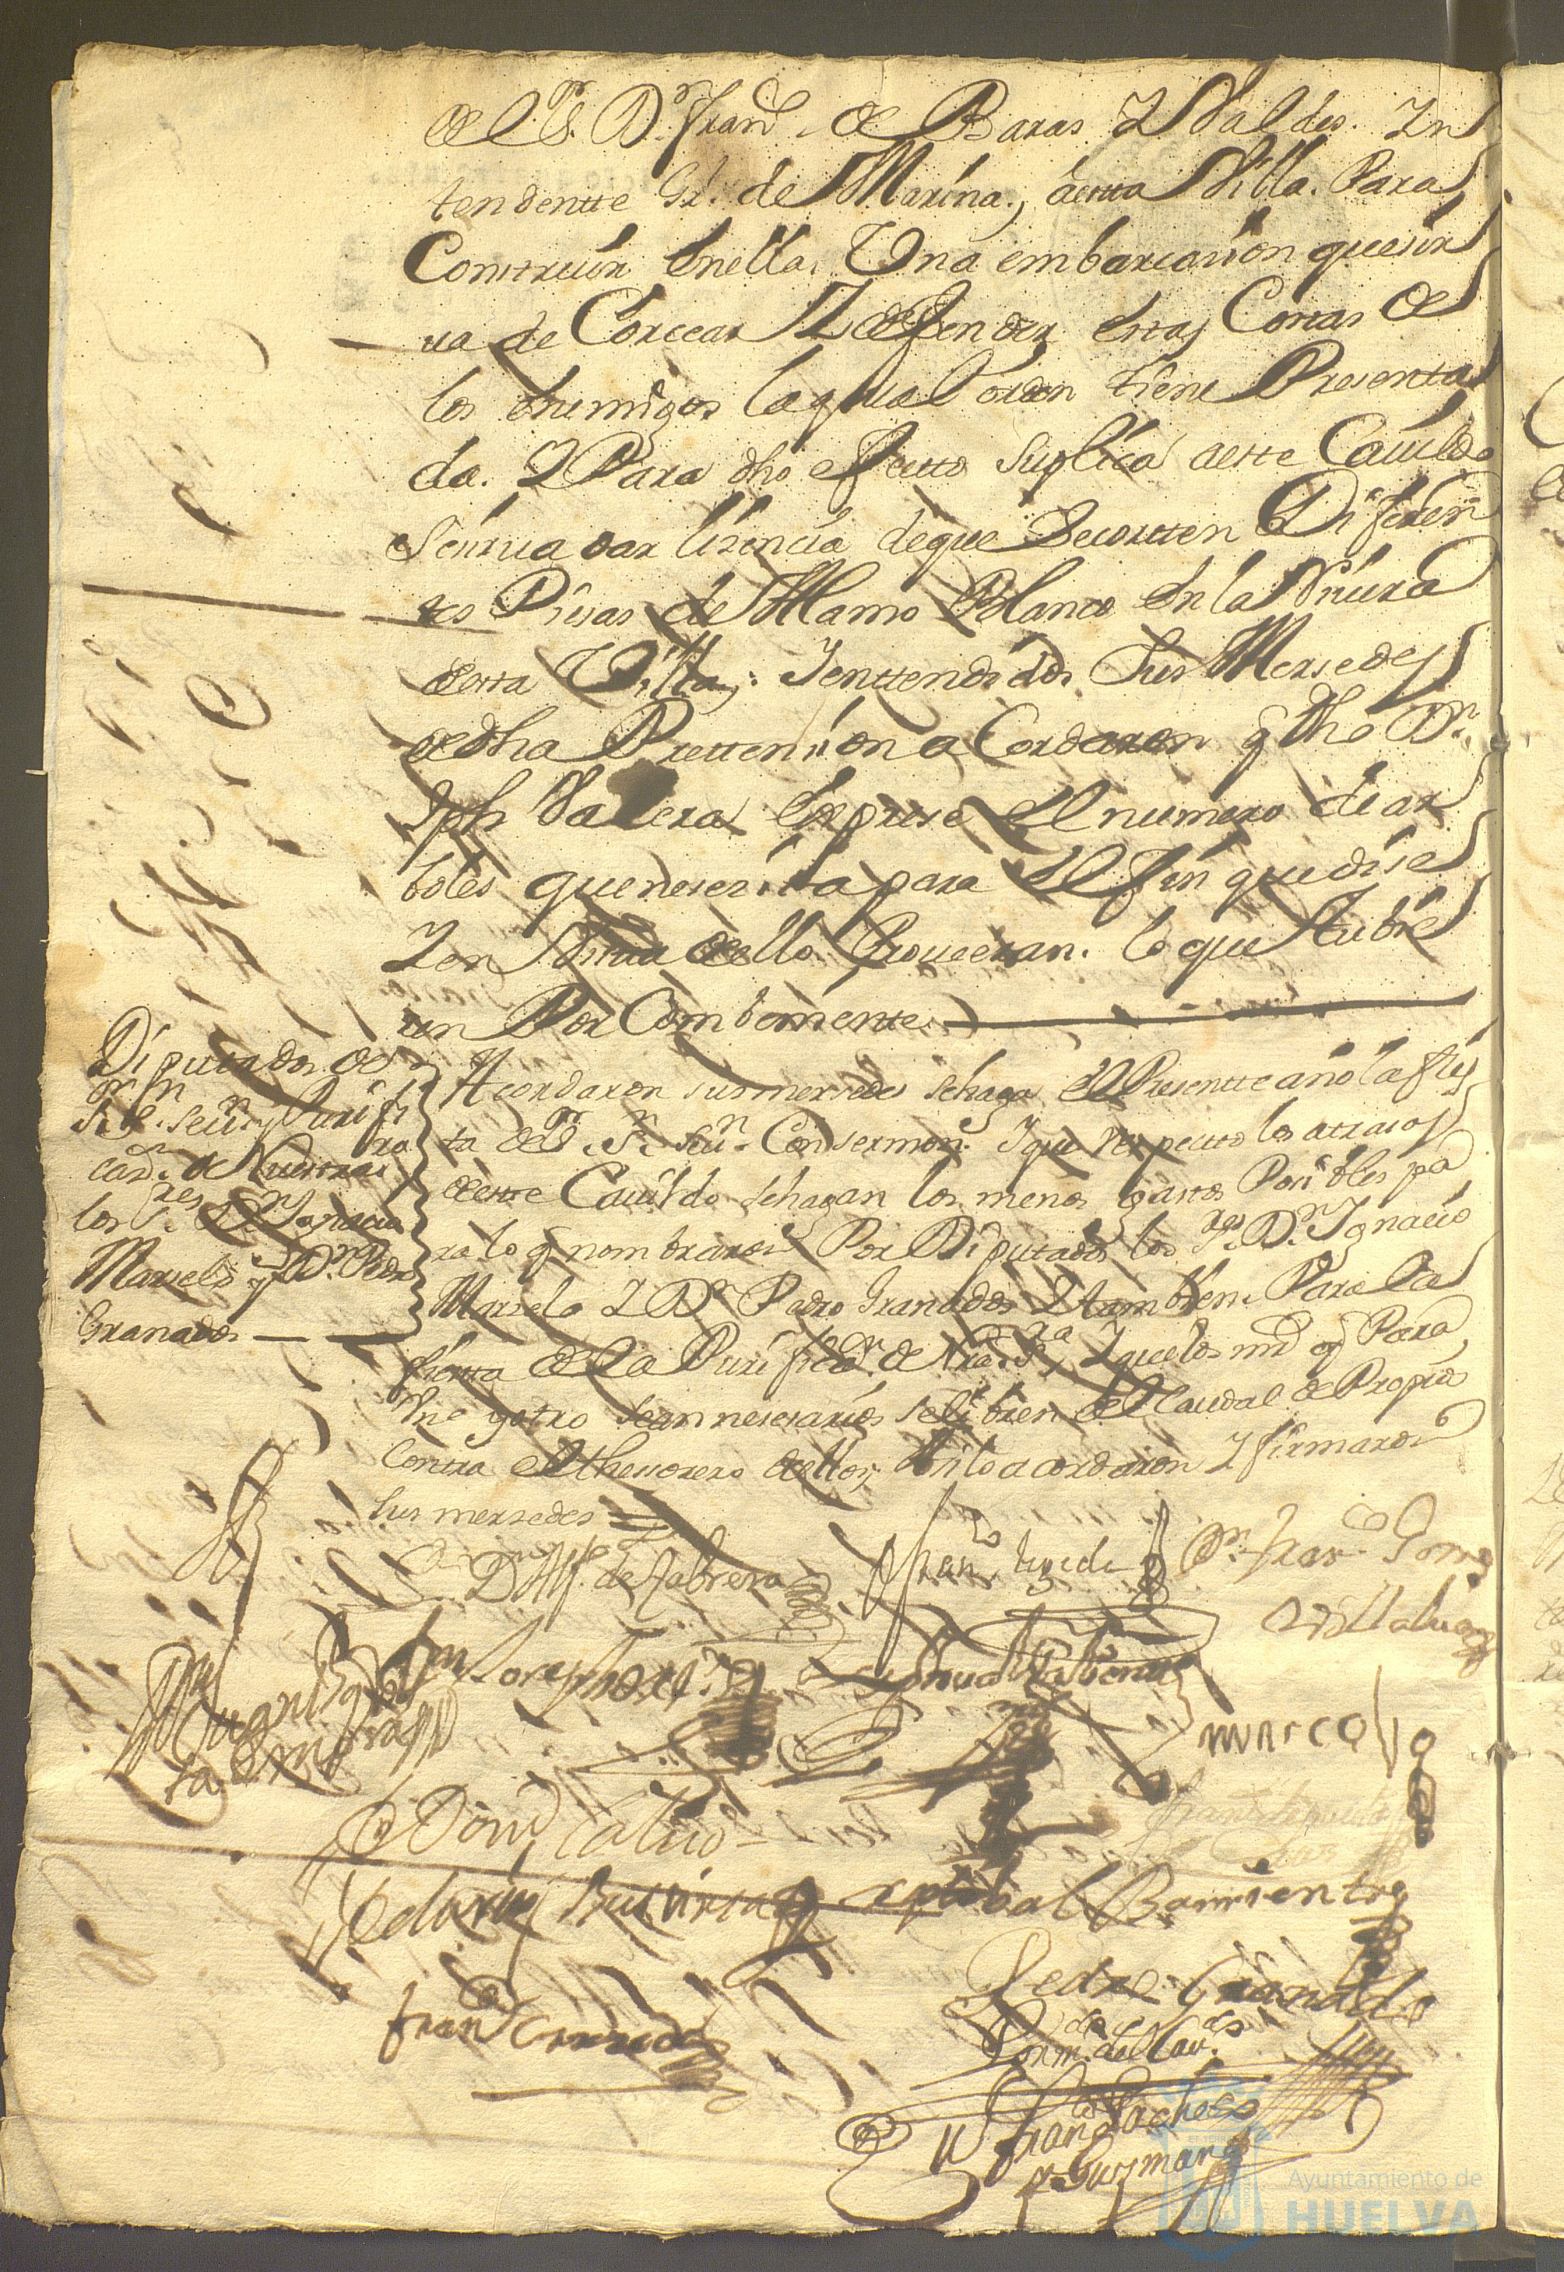 de el S.r D.n Fran.co de Baras Y Valdes. Yn
tendentte Gl. de Marina, a esta Villa. Para
Construir En ella, Una embarcasion que sir
va de Corcear Y defender estas Costas de
los Enemigos la qual orden tiene Presenta
da. Y Para dho efectto Suplica a este Cavildo
Se sirva dar lisencia de que Se cortten Diferen
tes Piesas de Alamo Blanco En la Rivera
desta Villa; Y enttendido Sus Mersedes
de dha Prettension a Cordaron q dho D.n
Jph Valera Exprese El numero de ar
boles que nesesita para El fin que dise
Y en Vista de ello Proveeran. lo que tubie
en Por Combeniente.
Diputados de
S.r S.n Seu.n y Purifi
caz.n de Nuestra
los S.res D.n Ygnacio
Marselo y D.n Pedro
Granados
Acordaron sus mersedes se haga El Presentte año la fies
ta de S.r S.n Seu.n Con sermon. Y que Respectto los atrasos
de este Cavildo se hagan los menos gastos Posibles pa
ra lo q nombraron Por Diputados los S.res D.n Ygnacio
Marselo Y D.n Pedro Granados Y tambien Para la
fiesta de La Purificaz.n de Nra S.ra, Y que los mrs q Para
Uno y otro sean nesesarios se libren del Caudal de Propios
Contra El thessorero de ellos; Asi lo acordaron Y firmaron
sus mersedes
D. Alf. de Cabrera
D.n Fran.co Gomes
Villalua
marcos
Cristobal Barrientos
Pedro Granado
Fran.co Pacheco
y Gusman
Ayuntamiento de
HUELVA